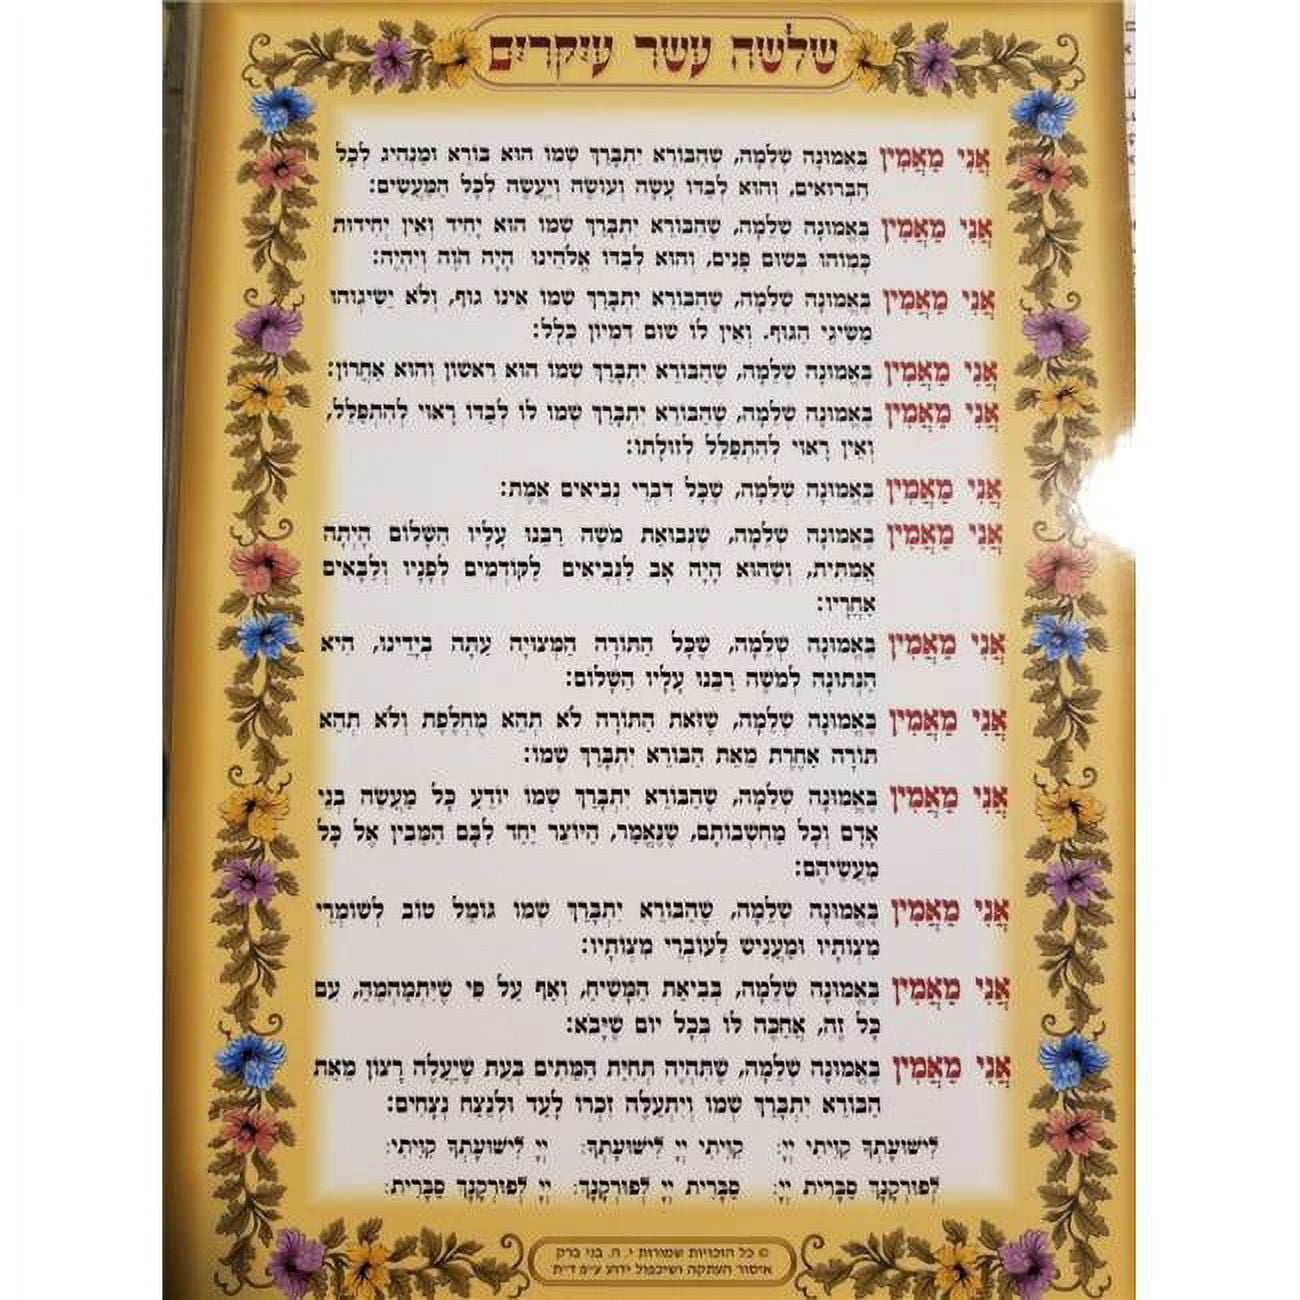 שלשה עשר עיקרים
אֲנִי מַאֲמִין בֶּאֱמוּנָה שְׁלֵמָה, שֶׁהַבּוֹרֵא יִתְבָּרַךְ שְׁמוֹ הוּא בּוֹרֵא וּמַנְהִיג לְכָל
הַבְּרוּאִים, וְהוּא לְבַדּוֹ עָשָׂה וְעוֹשֶׂה וְיַעֲשֶׂה לְכָל הַמַּעֲשִׂים:
אֲנִי מַאֲמִין בֶּאֱמוּנָה שְׁלֵמָה, שֶׁהַבּוֹרֵא יִתְבָּרַךְ שְׁמוֹ הוּא יָחִיד וְאֵין יְחִידוּת
כָּמוֹהוּ בְּשׁוּם פָּנִים, וְהוּא לְבַדּוֹ אֱלֹהֵינוּ הָיָה הֹוֶה וְיִהְיֶה:
אֲנִי מַאֲמִין בֶּאֱמוּנָה שְׁלֵמָה, שֶׁהַבּוֹרֵא יִתְבָּרַךְ שְׁמוֹ אֵינוֹ גוּף, וְלֹא יַשִּׂיגוּהוּ
מַשִּׂיגֵי הַגּוּף. וְאֵין לוֹ שׁוּם דִּמְיוֹן כְּלָל:
אֲנִי מַאֲמִין בֶּאֱמוּנָה שְׁלֵמָה, שֶׁהַבּוֹרֵא יִתְבָּרַךְ שְׁמוֹ הוּא רִאשׁוֹן וְהוּא אַחֲרוֹן:
אֲנִי מַאֲמִין בֶּאֱמוּנָה שְׁלֵמָה, שֶׁהַבּוֹרֵא יִתְבָּרַךְ שְׁמוֹ לוֹ לְבַדּוֹ רָאוּי לְהִתְפַּלֵּל,
וְאֵין רָאוּי לְהִתְפַּלֵּל לְזוּלָתוֹ:
אֲנִי מַאֲמִין בֶּאֱמוּנָה שְׁלֵמָה, שֶׁכָּל דִּבְרֵי נְבִיאִים אֱמֶת:
אֲנִי מַאֲמִין בֶּאֱמוּנָה שְׁלֵמָה, שֶׁנְּבוּאַת מֹשֶׁה רַבֵּנוּ עָלָיו הַשָּׁלוֹם הָיְתָה
אֲמִתִּית, וְשֶׁהוּא הָיָה אָב לַנְּבִיאִים לַקּוֹדְמִים לְפָנָיו וְלַבָּאִים
אַחֲרָיו:
אֲנִי מַאֲמִין בֶּאֱמוּנָה שְׁלֵמָה, שֶׁכָּל הַתּוֹרָה הַמְּצוּיָה עַתָּה בְיָדֵינוּ, הִיא
הַנְּתוּנָה לְמֹשֶׁה רַבֵּנוּ עָלָיו הַשָּׁלוֹם:
אֲנִי מַאֲמִין בֶּאֱמוּנָה שְׁלֵמָה, שֶׁזֹּאת הַתּוֹרָה לֹא תְהֵא מֻחְלֶפֶת וְלֹא תְהֵא
תּוֹרָה אַחֶרֶת מֵאֵת הַבּוֹרֵא יִתְבָּרַךְ שְׁמוֹ:
אֲנִי מַאֲמִין בֶּאֱמוּנָה שְׁלֵמָה, שֶׁהַבּוֹרֵא יִתְבָּרַךְ שְׁמוֹ יוֹדֵעַ כָּל מַעֲשֵׂה בְּנֵי
אָדָם וְכָל מַחְשְׁבוֹתָם, שֶׁנֶּאֱמַר, הַיּוֹצֵר יַחַד לִבָּם הַמֵּבִין אֶל כָּל
מַעֲשֵׂיהֶם:
אֲנִי מַאֲמִין בֶּאֱמוּנָה שְׁלֵמָה, שֶׁהַבּוֹרֵא יִתְבָּרַךְ שְׁמוֹ גּוֹמֵל טוֹב לְשׁוֹמְרֵי
מִצְוֹתָיו וּמַעֲנִישׁ לְעוֹבְרֵי מִצְוֹתָיו:
אֲנִי מַאֲמִין בֶּאֱמוּנָה שְׁלֵמָה, בְּבִיאַת הַמָּשִׁיחַ, וְאַף עַל פִּי שֶׁיִּתְמַהְמֵהַּ, עִם
כָּל זֶה, אֲחַכֶּה לּוֹ בְּכָל יוֹם שֶׁיָּבֹא:
אֲנִי מַאֲמִין בֶּאֱמוּנָה שְׁלֵמָה, שֶׁתִּהְיֶה תְּחִיַּת הַמֵּתִים בְּעֵת שֶׁיַּעֲלֶה רָצוֹן מֵאֵת
הַבּוֹרֵא יִתְבָּרַךְ שְׁמוֹ וְיִתְעַלֶּה זִכְרוֹ לָעַד וּלְנֵצַח נְצָחִים:
לִישׁוּעָתְךָ קִוִּיתִי יְיָ: קִוִּיתִי יְיָ לִישׁוּעָתְךָ: יְיָ לִישׁוּעָתְךָ קִוִּיתִי:
לְפוּרְקָנָךְ סַבָּרִית יְיָ: סַבָּרִית יְיָ לְפוּרְקָנָךְ: יְיָ לְפוּרְקָנָךְ סַבָּרִית:
© כל הזכויות שמורות י. ח. בני ברק
איסור העתקה ושיכפול ידוע ע״פ ד״ת